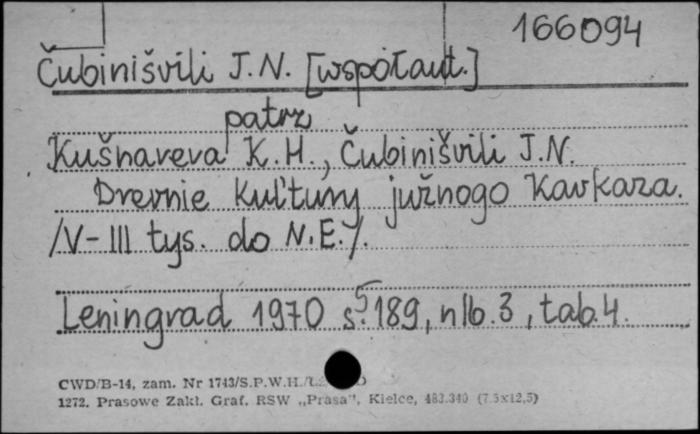 166094
Čubinišvili J.N. [współaut.]
patrz
Kušnareva K.H., Čubinišvili J.N.
Drevnie kul'tury južnogo Kavkaza.
/V-III tys. do N.E./.
Leningrad 1970 s. 189, nlb. 3, tab. 4.
CWD/B-14, zam. Nr 1743/S.P.W.H./
1272. Prasowe Zakł. Graf. RSW „Prasa”, Kielce, 483.340 (7.5x12,5)